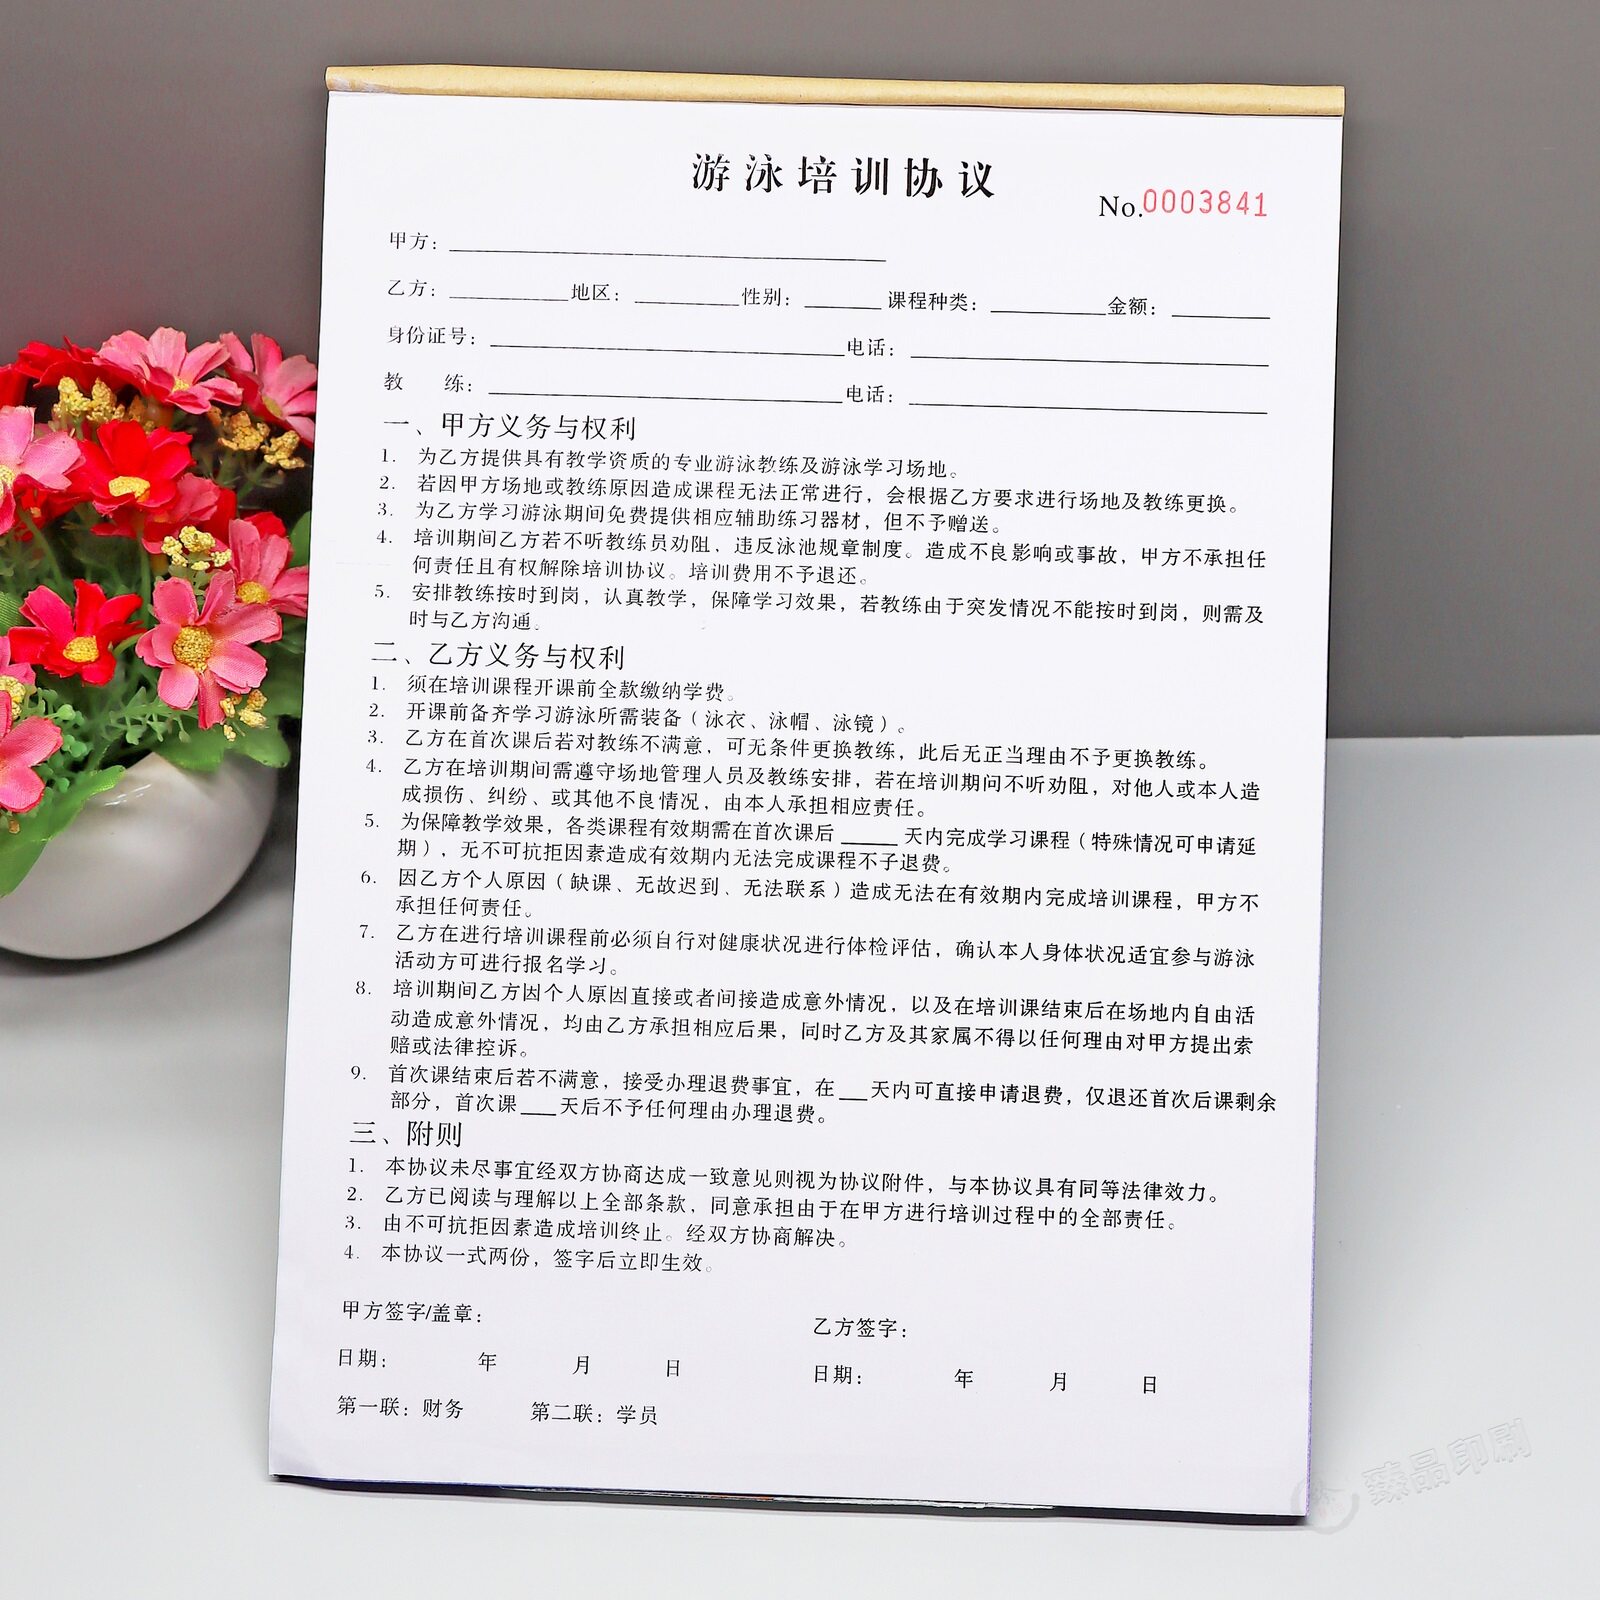 游泳培训协议
No.0003841
甲方：
乙方： 地区： 性别： 课程种类： 金额：
身份证号： 电话：
教 练： 电话：
一、甲方义务与权利
1. 为乙方提供具有教学资质的专业游泳教练及游泳学习场地。
2. 若因甲方场地或教练原因造成课程无法正常进行，会根据乙方要求进行场地及教练更换。
3. 为乙方学习游泳期间免费提供相应辅助练习器材，但不予赠送。
4. 培训期间乙方若不听教练员劝阻，违反泳池规章制度。造成不良影响或事故，甲方不承担任
何责任且有权解除培训协议。培训费用不予退还。
5. 安排教练按时到岗，认真教学，保障学习效果，若教练由于突发情况不能按时到岗，则需及
时与乙方沟通。
二、乙方义务与权利
1. 须在培训课程开课前全款缴纳学费。
2. 开课前备齐学习游泳所需装备（泳衣、泳帽、泳镜）。
3. 乙方在首次课后若对教练不满意，可无条件更换教练，此后无正当理由不予更换教练。
4. 乙方在培训期间需遵守场地管理人员及教练安排，若在培训期问不听劝阻，对他人或本人造
成损伤、纠纷、或其他不良情况，由本人承担相应责任。
5. 为保障教学效果，各类课程有效期需在首次课后 _____ 天内完成学习课程（特殊情况可申请延
期），无不可抗拒因素造成有效期内无法完成课程不子退费。
6. 因乙方个人原因（缺课、无故迟到、无法联系）造成无法在有效期内完成培训课程，甲方不
承担任何责任。
7. 乙方在进行培训课程前必须自行对健康状况进行体检评估，确认本人身体状况适宜参与游泳
活动方可进行报名学习。
8. 培训期间乙方因个人原因直接或者间接造成意外情况，以及在培训课结束后在场地内自由活
动造成意外情况，均由乙方承担相应后果，同时乙方及其家属不得以任何理由对甲方提出索
赔或法律控诉。
9. 首次课结束后若不满意，接受办理退费事宜，在 ___ 天内可直接申请退费，仅退还首次后课剩余
部分，首次课 ___ 天后不予任何理由办理退费。
三、附则
1. 本协议未尽事宜经双方协商达成一致意见则视为协议附件，与本协议具有同等法律效力。
2. 乙方已阅读与理解以上全部条款，同意承担由于在甲方进行培训过程中的全部责任。
3. 由不可抗拒因素造成培训终止。经双方协商解决。
4. 本协议一式两份，签字后立即生效。
甲方签字/盖章： 乙方签字：
日期： 年 月 日 日期： 年 月 日
第一联：财务 第二联：学员
臻品印刷